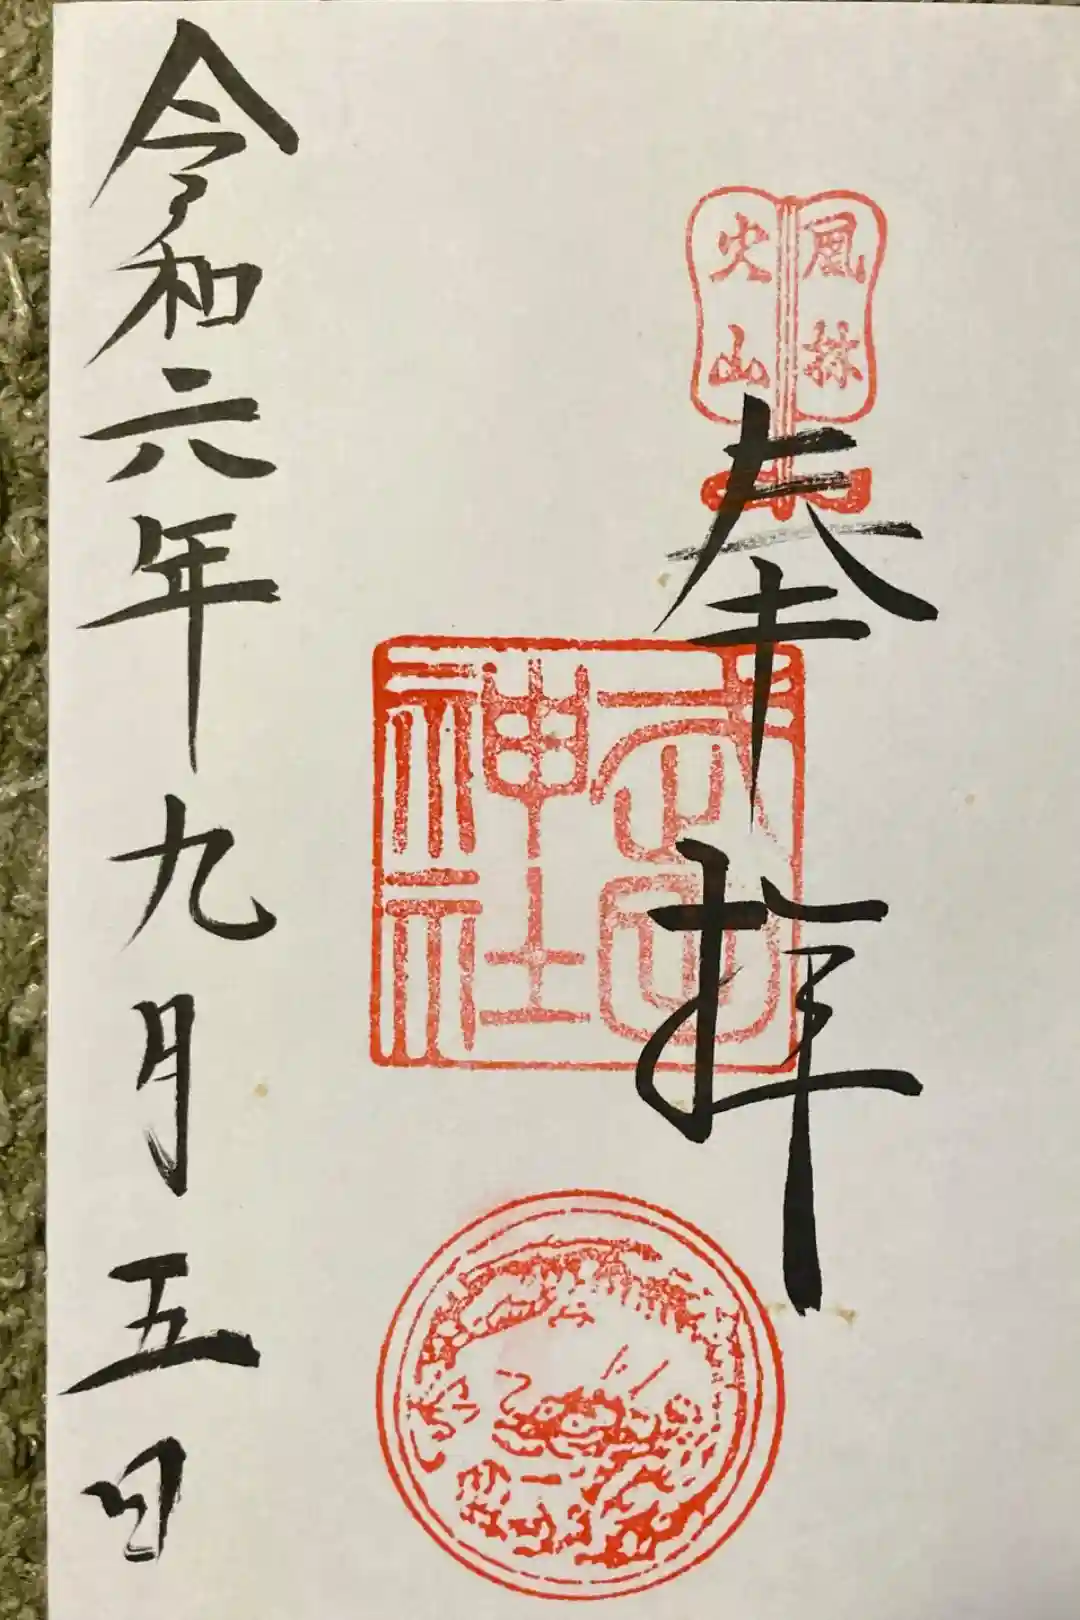 風林
火山
奉拝
武田
神社
令和六年九月五日